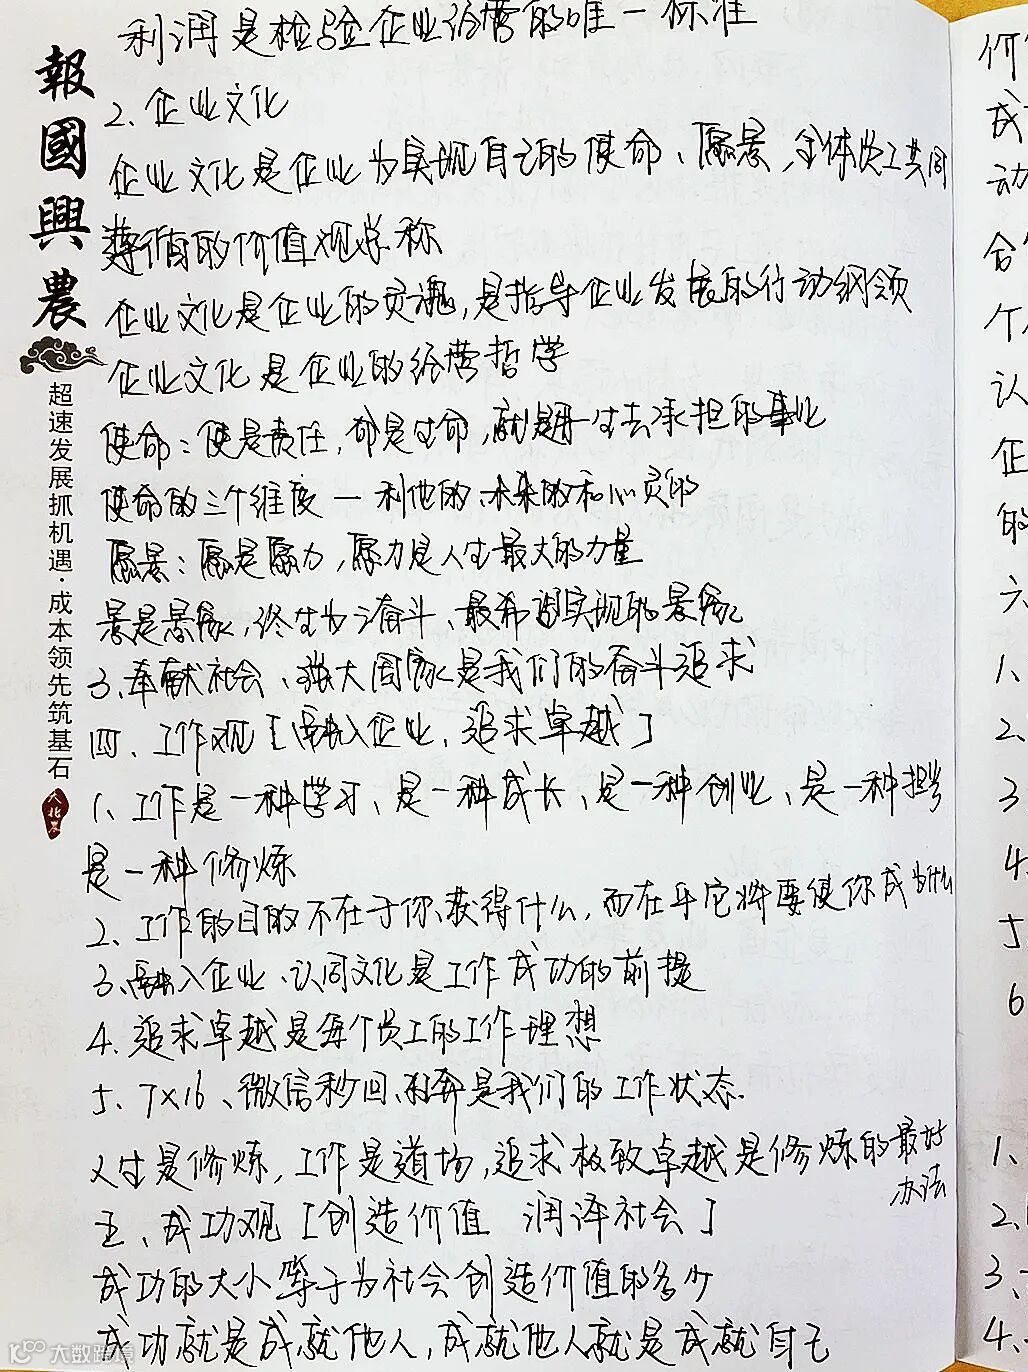 報國興農
超速发展抓机遇·成本领先筑基石
大北农
利润是检验企业经营的唯一标准
2、企业文化
企业文化是企业为实现自己的使命、愿景，全体员工共同
遵循的价值观总称
企业文化是企业的灵魂，是指导企业发展的行动纲领
企业文化是企业的经营哲学
使命：使是责任，命是生命，就是用一生去承担的事业
使命的三个维度一利他的、未来的和心灵的
愿景：愿是愿力，愿力是人生最大的力量
景是景象，终生为之奋斗、最希望实现的景象
3、奉献社会、强大国家是我们的奋斗追求
四、工作观［融入企业，追求卓越］
1、工作是一种学习、是一种成长、是一种创业、是一种担当
是一种修炼
2、工作的目的不在于你获得什么，而在乎它将要使你成为什么
3、融入企业、认同文化是工作成功的前提
4、追求卓越是每个员工的工作理想
5、7×16、微信秒回、狂奔是我们的工作状态.
人生是修炼，工作是道场，追求极致卓越是修炼的最好
办法
五、成功观［创造价值 润泽社会］
成功的大小等于为社会创造价值的多少
成功就是成就他人，成就他人就是成就自己
成
动
合
个
认
企
的
六
1、
2、
3
4、
5
6
1、
2、
3、
4、
大数跨境